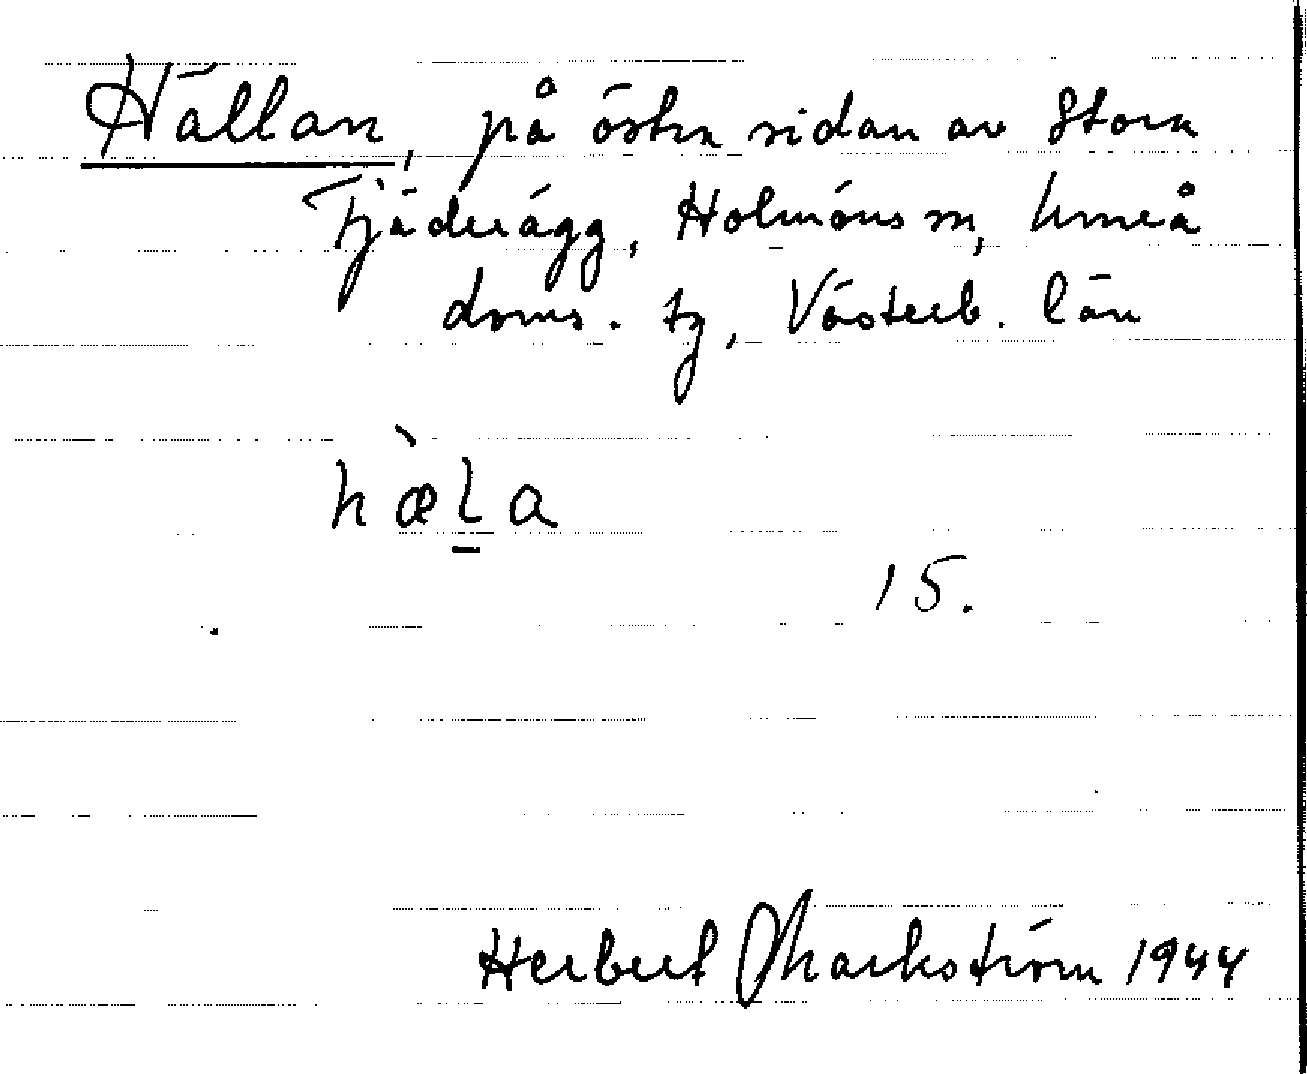 Hällan, på östra sidan av Stora
Fjäderägg, Holmöns sn, Umeå
doms. tg, Västerb. län
hæ̀l̲a
15.
Herbert Markström 1944